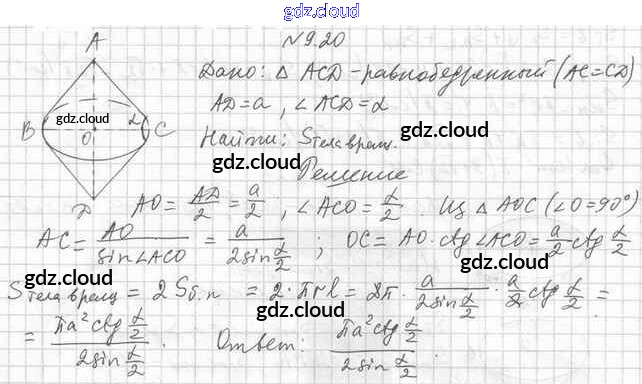 gdz.cloud
№9.20
A
Дано: Δ ACD - равнобедренный (AC=CD)
AD=a, ∠ACD=α
B O α C
gdz.cloud
gdz.cloud
Найти: Sтела вращ.
gdz.cloud
Решение
D
AO = AD/2 = a/2 ; ∠ACO = α/2. Из Δ AOC (∠O=90°)
gdz.cloud
AC = AO/sin∠ACO = a/(2sin α/2) ; OC = AO·ctg∠ACO = a/2 ctg α/2
gdz.cloud
gdz.cloud
Sтела вращ = 2Sб.п = 2·πrl = 2π · a/(2sin α/2) · a/2 ctg α/2 =
gdz.cloud
= πa² ctg α/2 / (2sin α/2). Ответ: πa² ctg α/2 / (2sin α/2).
gdz.cloud